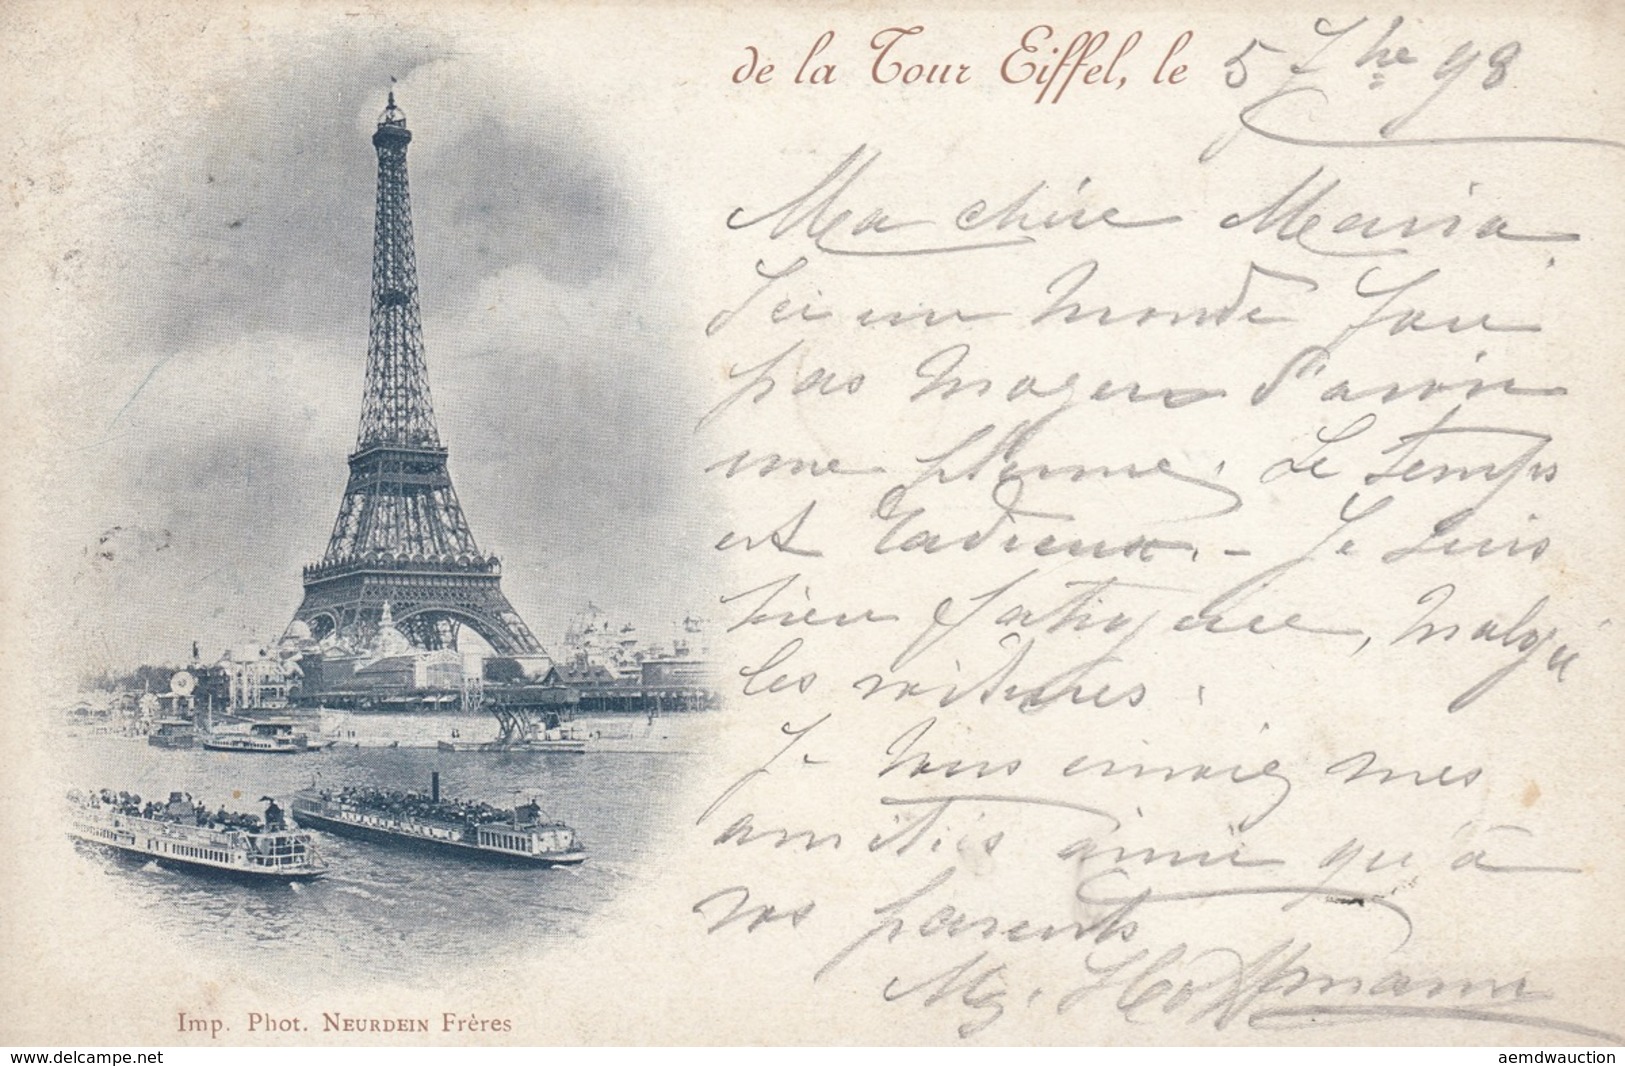 de la Tour Eiffel, le 5 7bre 98
Ma chère Maria
J'ai un monde fou
pas moyen d'avoir
une plume. Le temps
est radieux. - Je suis
bien fatiguée, malgré
les voitures.
Je vous envoie mes
amitiés ainsi qu'à
vos parents
Hoffmann
Imp. Phot. NEURDEIN Frères
www.delcampe.net
aemdwauction